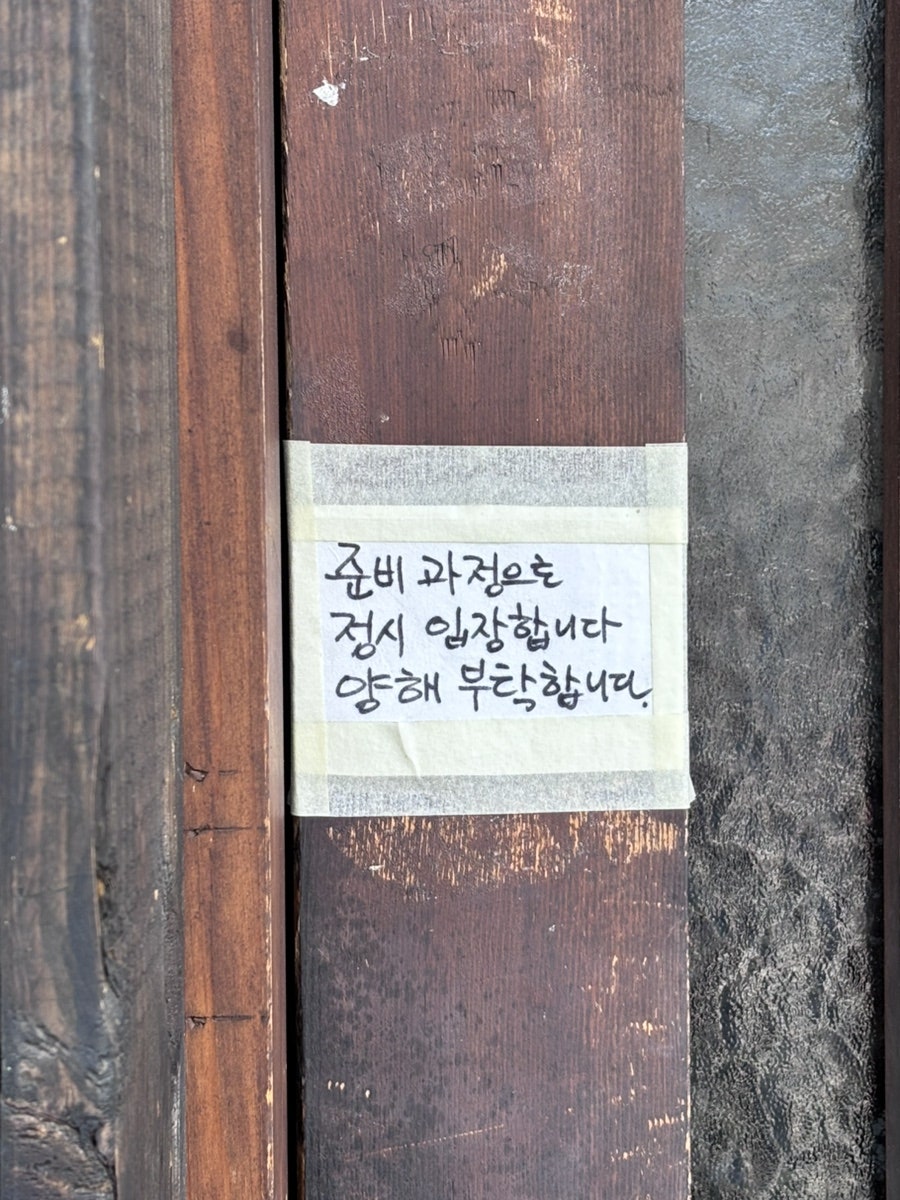 준비 과정으로
정시 입장합니다
양해 부탁합니다.